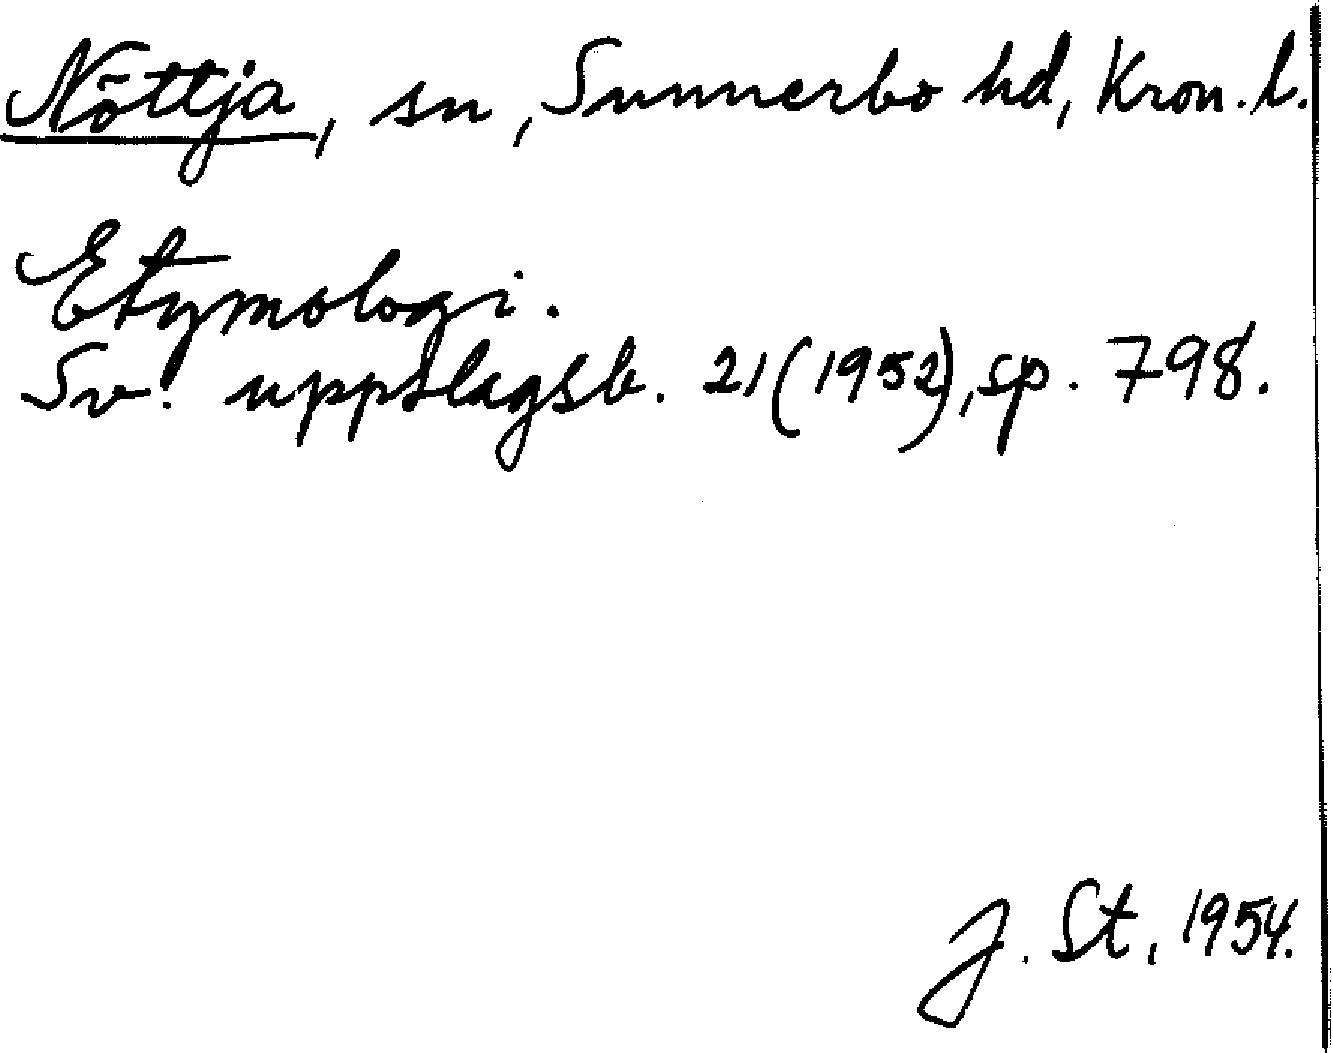 Nöttja, sn, Sunnerbo hd, Kron. l.
Etymologi.
Sv. uppslagsb. 21 (1952), sp. 798.
J. St, 1954.